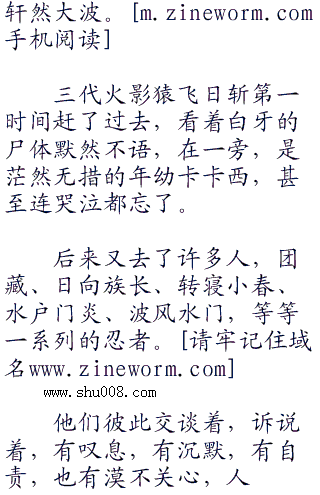 轩然大波。[m.zineworm.com
手机阅读]
三代火影猿飞日斩第一
时间赶了过去，看着白牙的
尸体默然不语，在一旁，是
茫然无措的年幼卡卡西，甚
至连哭泣都忘了。
后来又去了许多人，团
藏、日向族长、转寝小春、
水户门炎、波风水门，等等
一系列的忍者。[请牢记住域
名www.zineworm.com]
www.shu008.com
他们彼此交谈着，诉说
着，有叹息，有沉默，有自
责，也有漠不关心，人